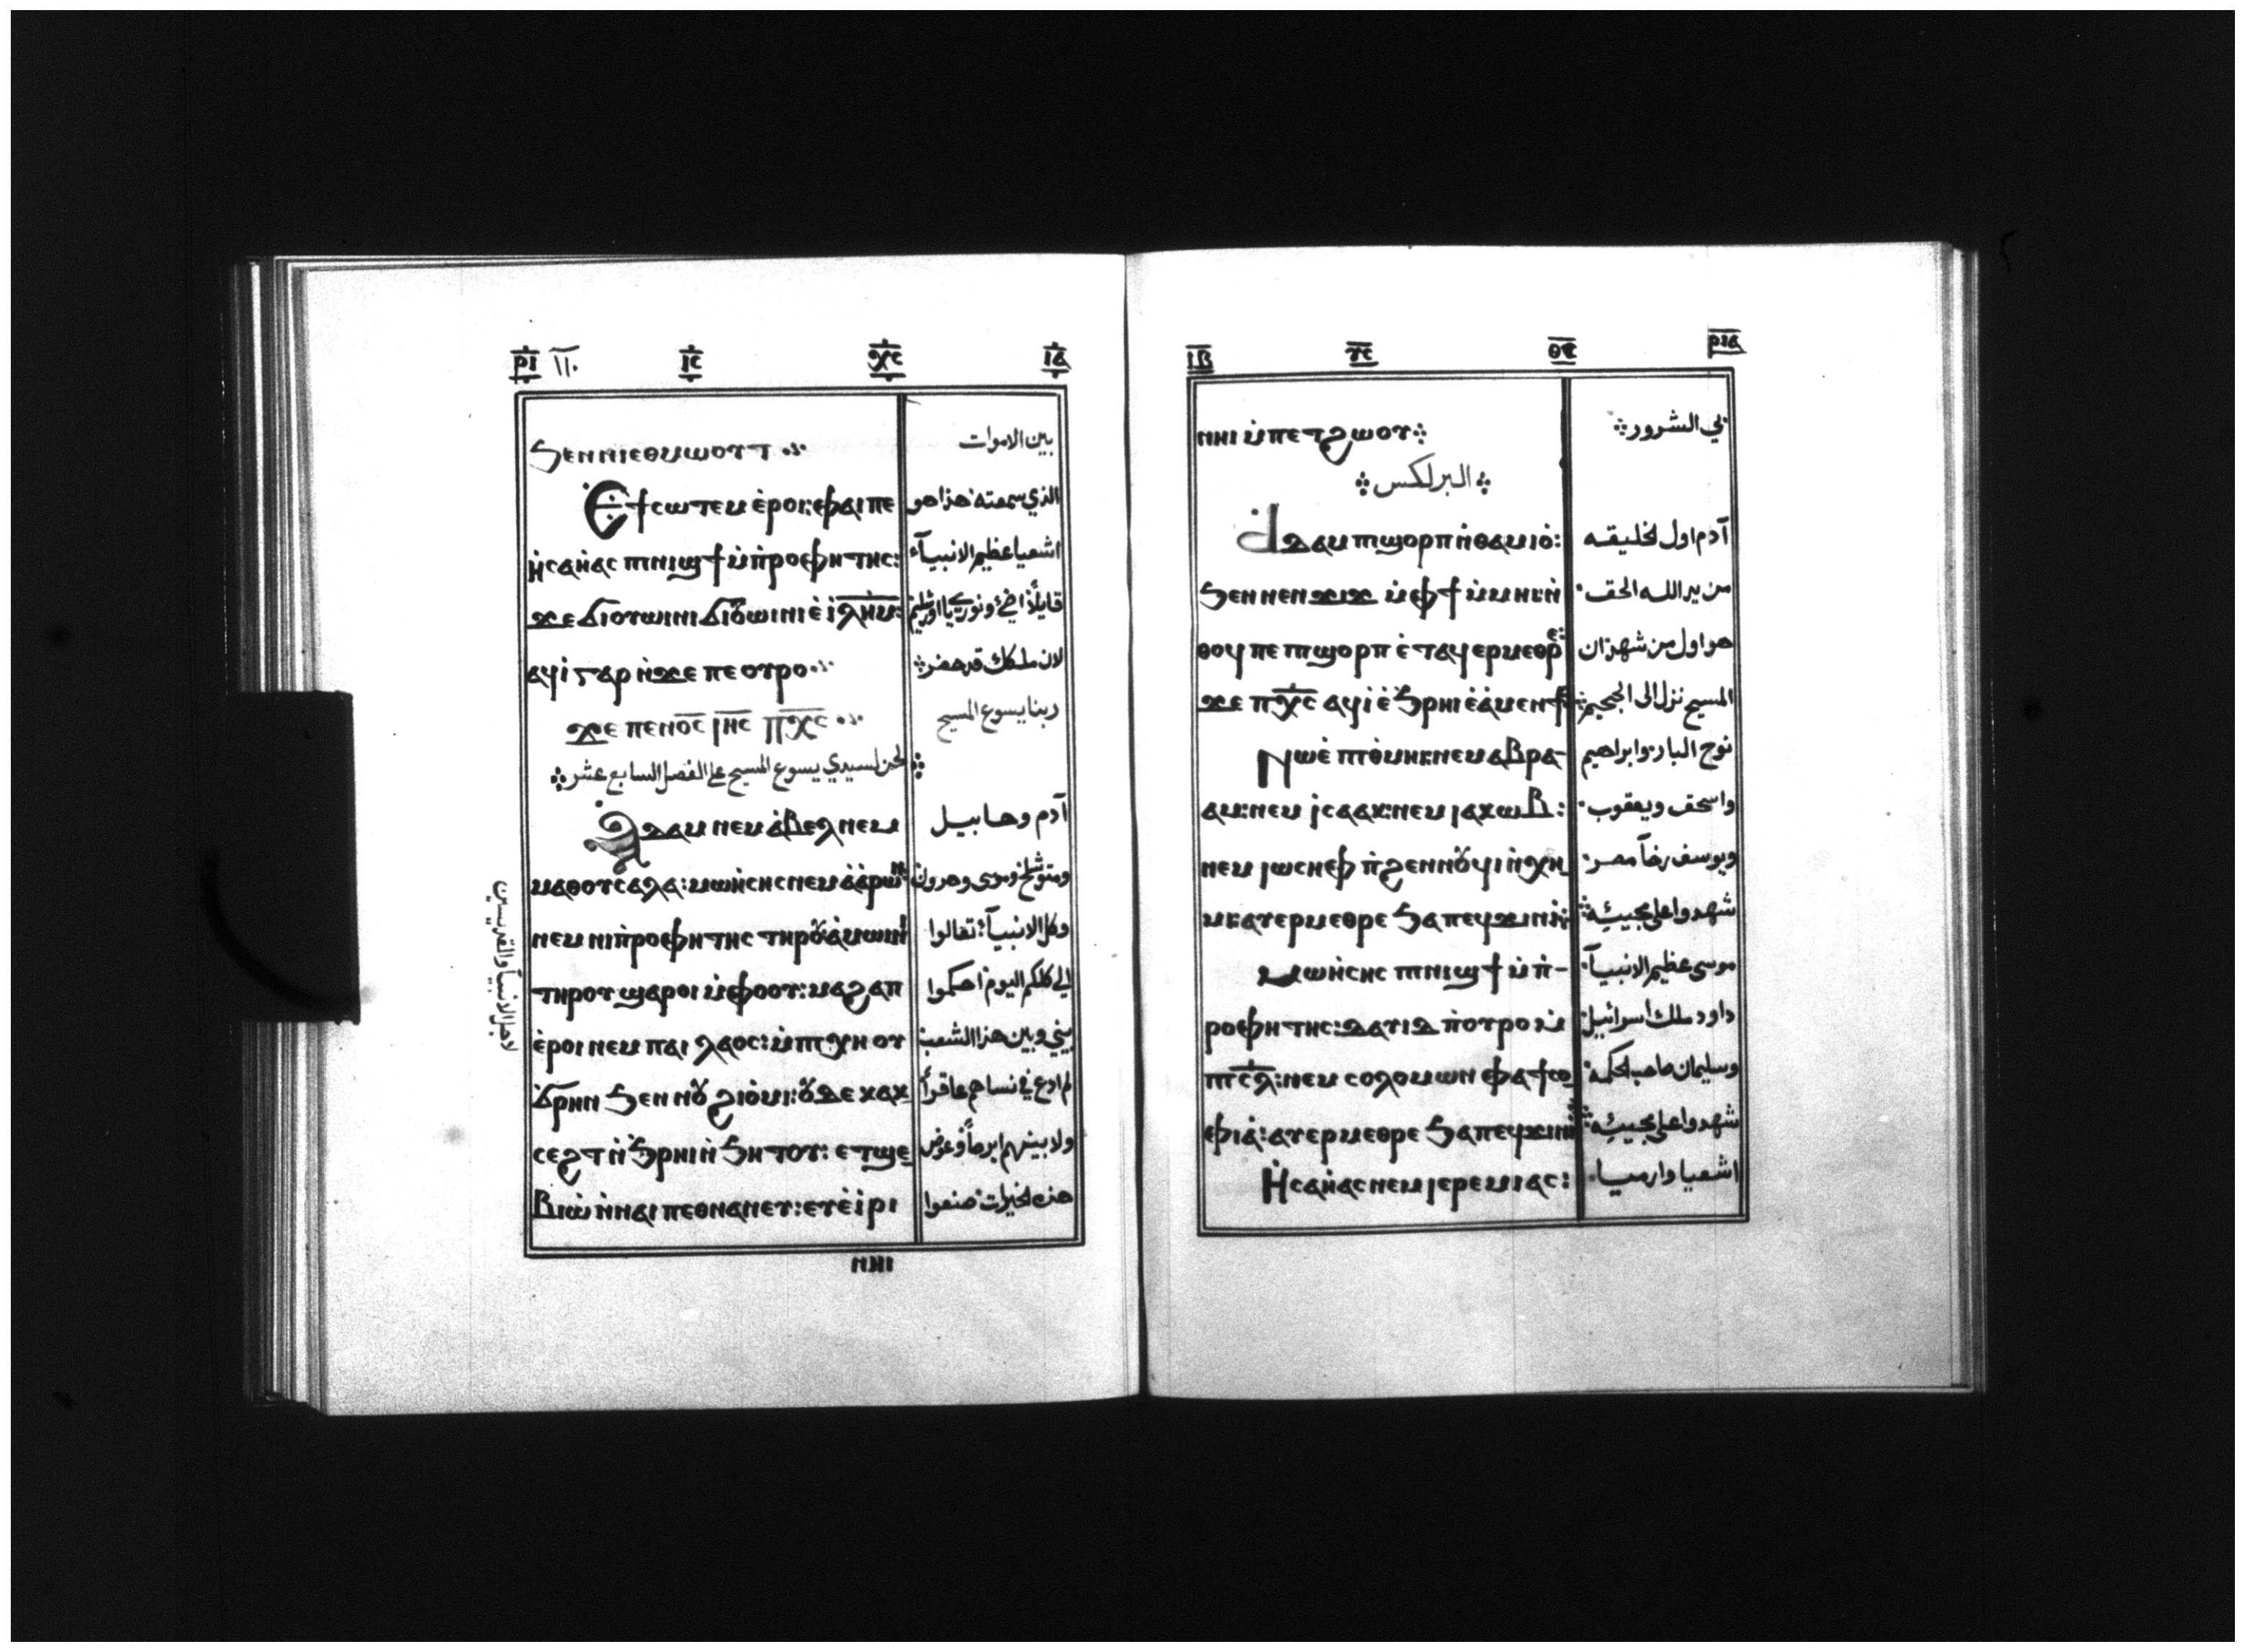 ⲣⲓ ١١٠ ⲓⲥ ⲭⲥ ⲓⲁ
ϧⲉⲛⲛⲓⲉⲑⲙⲱⲟⲩⲧ بين الاموات
Ⲉϯⲥⲱⲧⲉⲙ ⲉ̀ⲣⲟⲓ: ⲫⲁⲓ ⲡⲉ الذي سمعته هذا هو
ⲏ̀ⲥⲁⲏ̀ⲁⲥ ⲡⲛⲓϣϯ ⲙ̀ⲡ̀ⲣⲟⲫⲏⲧⲏⲥ: اشعيا عظيم الانبيآء
ϫⲉ ϭⲓⲟⲩⲱⲓⲛⲓ ϭⲓⲟⲩⲱⲓⲛⲓ ⲉ̀ ⲓ̀ⲗ̅ⲏ̅ⲙ̅: قايلاً اضيء ونوري يا اورشليم
ⲁϥⲓ̀ ⲅⲁⲣ ⲛ̀ϫⲉ ⲡⲉⲟⲩⲣⲟ لان ملكك قد حضر
ϫⲉ ⲡⲉⲛⲟ̅ⲥ̅ ⲓⲏ̅ⲥ̅ ⲡⲭ̅ⲥ̅ ربنا يسوع المسيح
لحن لسيدي يسوع المسيح على الفصل السابع عشر
Ⲁⲇⲁⲙ ⲛⲉⲙ ⲁ̀ⲃⲉⲗ ⲛⲉⲙ آدم وهابيل
ⲙⲁⲑⲟⲩⲥⲁⲗⲁ: ⲙⲱⲏ̀ⲥⲏⲥ ⲛⲉⲙ ⲁ̀ⲁ̀ⲣⲱⲛ ومتوشلخ وموسى وهرون
ⲛⲉⲙ ⲛⲓⲡ̀ⲣⲟⲫⲏⲧⲏⲥ ⲧⲏⲣⲟⲩ ⲁ̀ⲙⲱⲓⲛⲓ وكل الانبيآء تعالوا
ⲧⲏⲣⲟⲩ ϣⲁⲣⲟⲓ ⲙ̀ⲫⲟⲟⲩ: ⲙⲁϩⲁⲡ الي كلكم اليوم احكموا
ⲉ̀ⲣⲟⲓ ⲛⲉⲙ ⲡⲁⲓ ⲗⲁⲟⲥ: ⲙ̀ⲡⲓⲭⲏ ⲟⲩ بيني وبين هذا الشعب
ϭⲣⲏⲛ ϧⲉⲛ ⲛⲟⲩϩⲓⲟ̀ⲙⲓ: ⲟⲩⲇⲉ ⲕⲁⲕ لم ادع في نساهم عاقراً
ⲥⲉϩⲧ ⲛ̀ϧⲣⲏⲓ ⲛ̀ϧⲏⲧⲟⲩ: ⲉⲧϣⲉ ولا بينهم ابرصاً وعوض
ⲃⲓⲱ̀ ⲛ̀ⲛⲁⲓ ⲡⲉⲑⲛⲁⲛⲉⲩ: ⲉⲩⲉ̀ⲓⲣⲓ هذه الخيرات صنعوا
ⲛⲏⲓ
لاجل الانبيا والقديسين
ⲓⲃ ⲩⲥ ⲑⲥ ⲣⲓⲁ
ⲛⲏⲓ ⲙ̀ⲡⲉⲧϩⲱⲟⲩ بي الشرور
البرلكس
Ⲁⲇⲁⲙ ⲡϣⲟⲣⲡ ⲛ̀ⲑⲁⲙⲓⲟ̀: آدم اول لخليقه
ϧⲉⲛ ⲛⲉⲛϫⲓϫ ⲙ̀ⲫϯ ⲙ̀ⲙⲏⲓ ⲛ̀ من يد الله الحق
ⲑⲟϥ ⲡⲉ ⲡϣⲟⲣⲡ ⲉ̀ⲧⲁϥⲉⲣⲙⲉⲑⲣⲉ هو اول من شهد ان
ϫⲉ ⲡⲭ̅ⲥ̅ ⲁϥⲓ̀ ⲉ̀ϧⲣⲏⲓ ⲉ̀ⲁ̀ⲙⲉⲛϯ المسيح نزل الى الجحيم
Ⲛⲱⲉ̀ ⲡⲓⲑ̀ⲙⲏⲓ ⲛⲉⲙ ⲁⲃⲣⲁ- نوح البار وابراهيم
ⲁⲙ: ⲛⲉⲙ ⲓⲥⲁⲁⲕ: ⲛⲉⲙ ⲓⲁⲕⲱⲃ: واسحق ويعقوب
ⲛⲉⲙ ⲓⲱⲥⲏⲫ ⲡ̀ϩⲉⲛⲛⲟⲩϥⲓ ⲛ̀ⲭⲏ ويوسف رضآ مصر
ⲙⲓ ⲁⲩⲉⲣⲙⲉⲑⲣⲉ ϧⲁ ⲡⲉϥϫⲓⲛⲓ̀ شهدوا على مجيئه
Ⲙⲱⲏ̀ⲥⲏⲥ ⲡⲛⲓϣϯ ⲙ̀ⲡ̀- موسى عظيم الانبيآ
ⲣⲟⲫⲏⲧⲏⲥ: ⲇⲁⲩⲓⲇ ⲡ̀ⲟⲩⲣⲟ ⲙ̀ داود ملك اسرائيل
ⲡⲓⲥ̅ⲗ̅: ⲛⲉⲙ ⲥⲟⲗⲟⲙⲱⲛ ⲫⲁ ϯⲥⲟ وسليمان صاحب الحكمة
ⲫⲓⲁ̀: ⲁⲩⲉⲣⲙⲉⲑⲣⲉ ϧⲁ ⲡⲉϥϫⲓⲛⲓ̀ شهدوا على مجيئه
Ⲏ̀ⲥⲁⲏ̀ⲁⲥ ⲛⲉⲙ ⲓⲉⲣⲉⲙⲓⲁⲥ: اشعيا وارميا